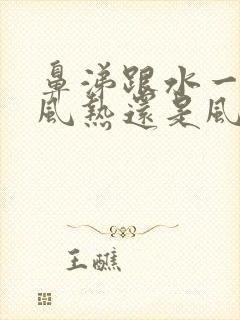 鼻涕跟水一
風熱還是風
王醮